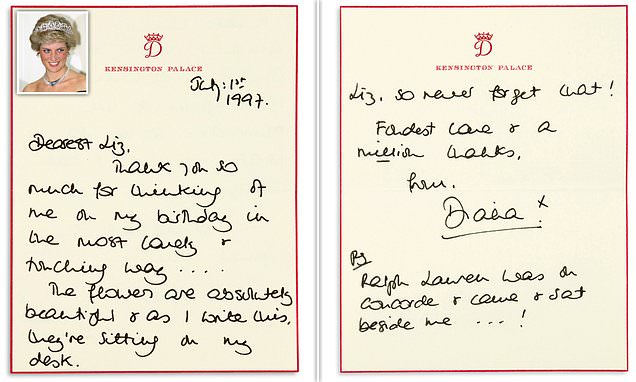 D
KENSINGTON PALACE
July: 1st
1997.
Dearest Liz,
Thank you so
much for thinking of
me on my birthday in
the most lovely &
touching way ....
The flowers are absolutely
beautiful & as I write this,
they're sitting on my
desk.
D
KENSINGTON PALACE
Liz, so never forget that!
Fondest love & a
million thanks,
from,
Diana x!
PS
Ralph Lauren was on
Concorde & came & sat
beside me ...!